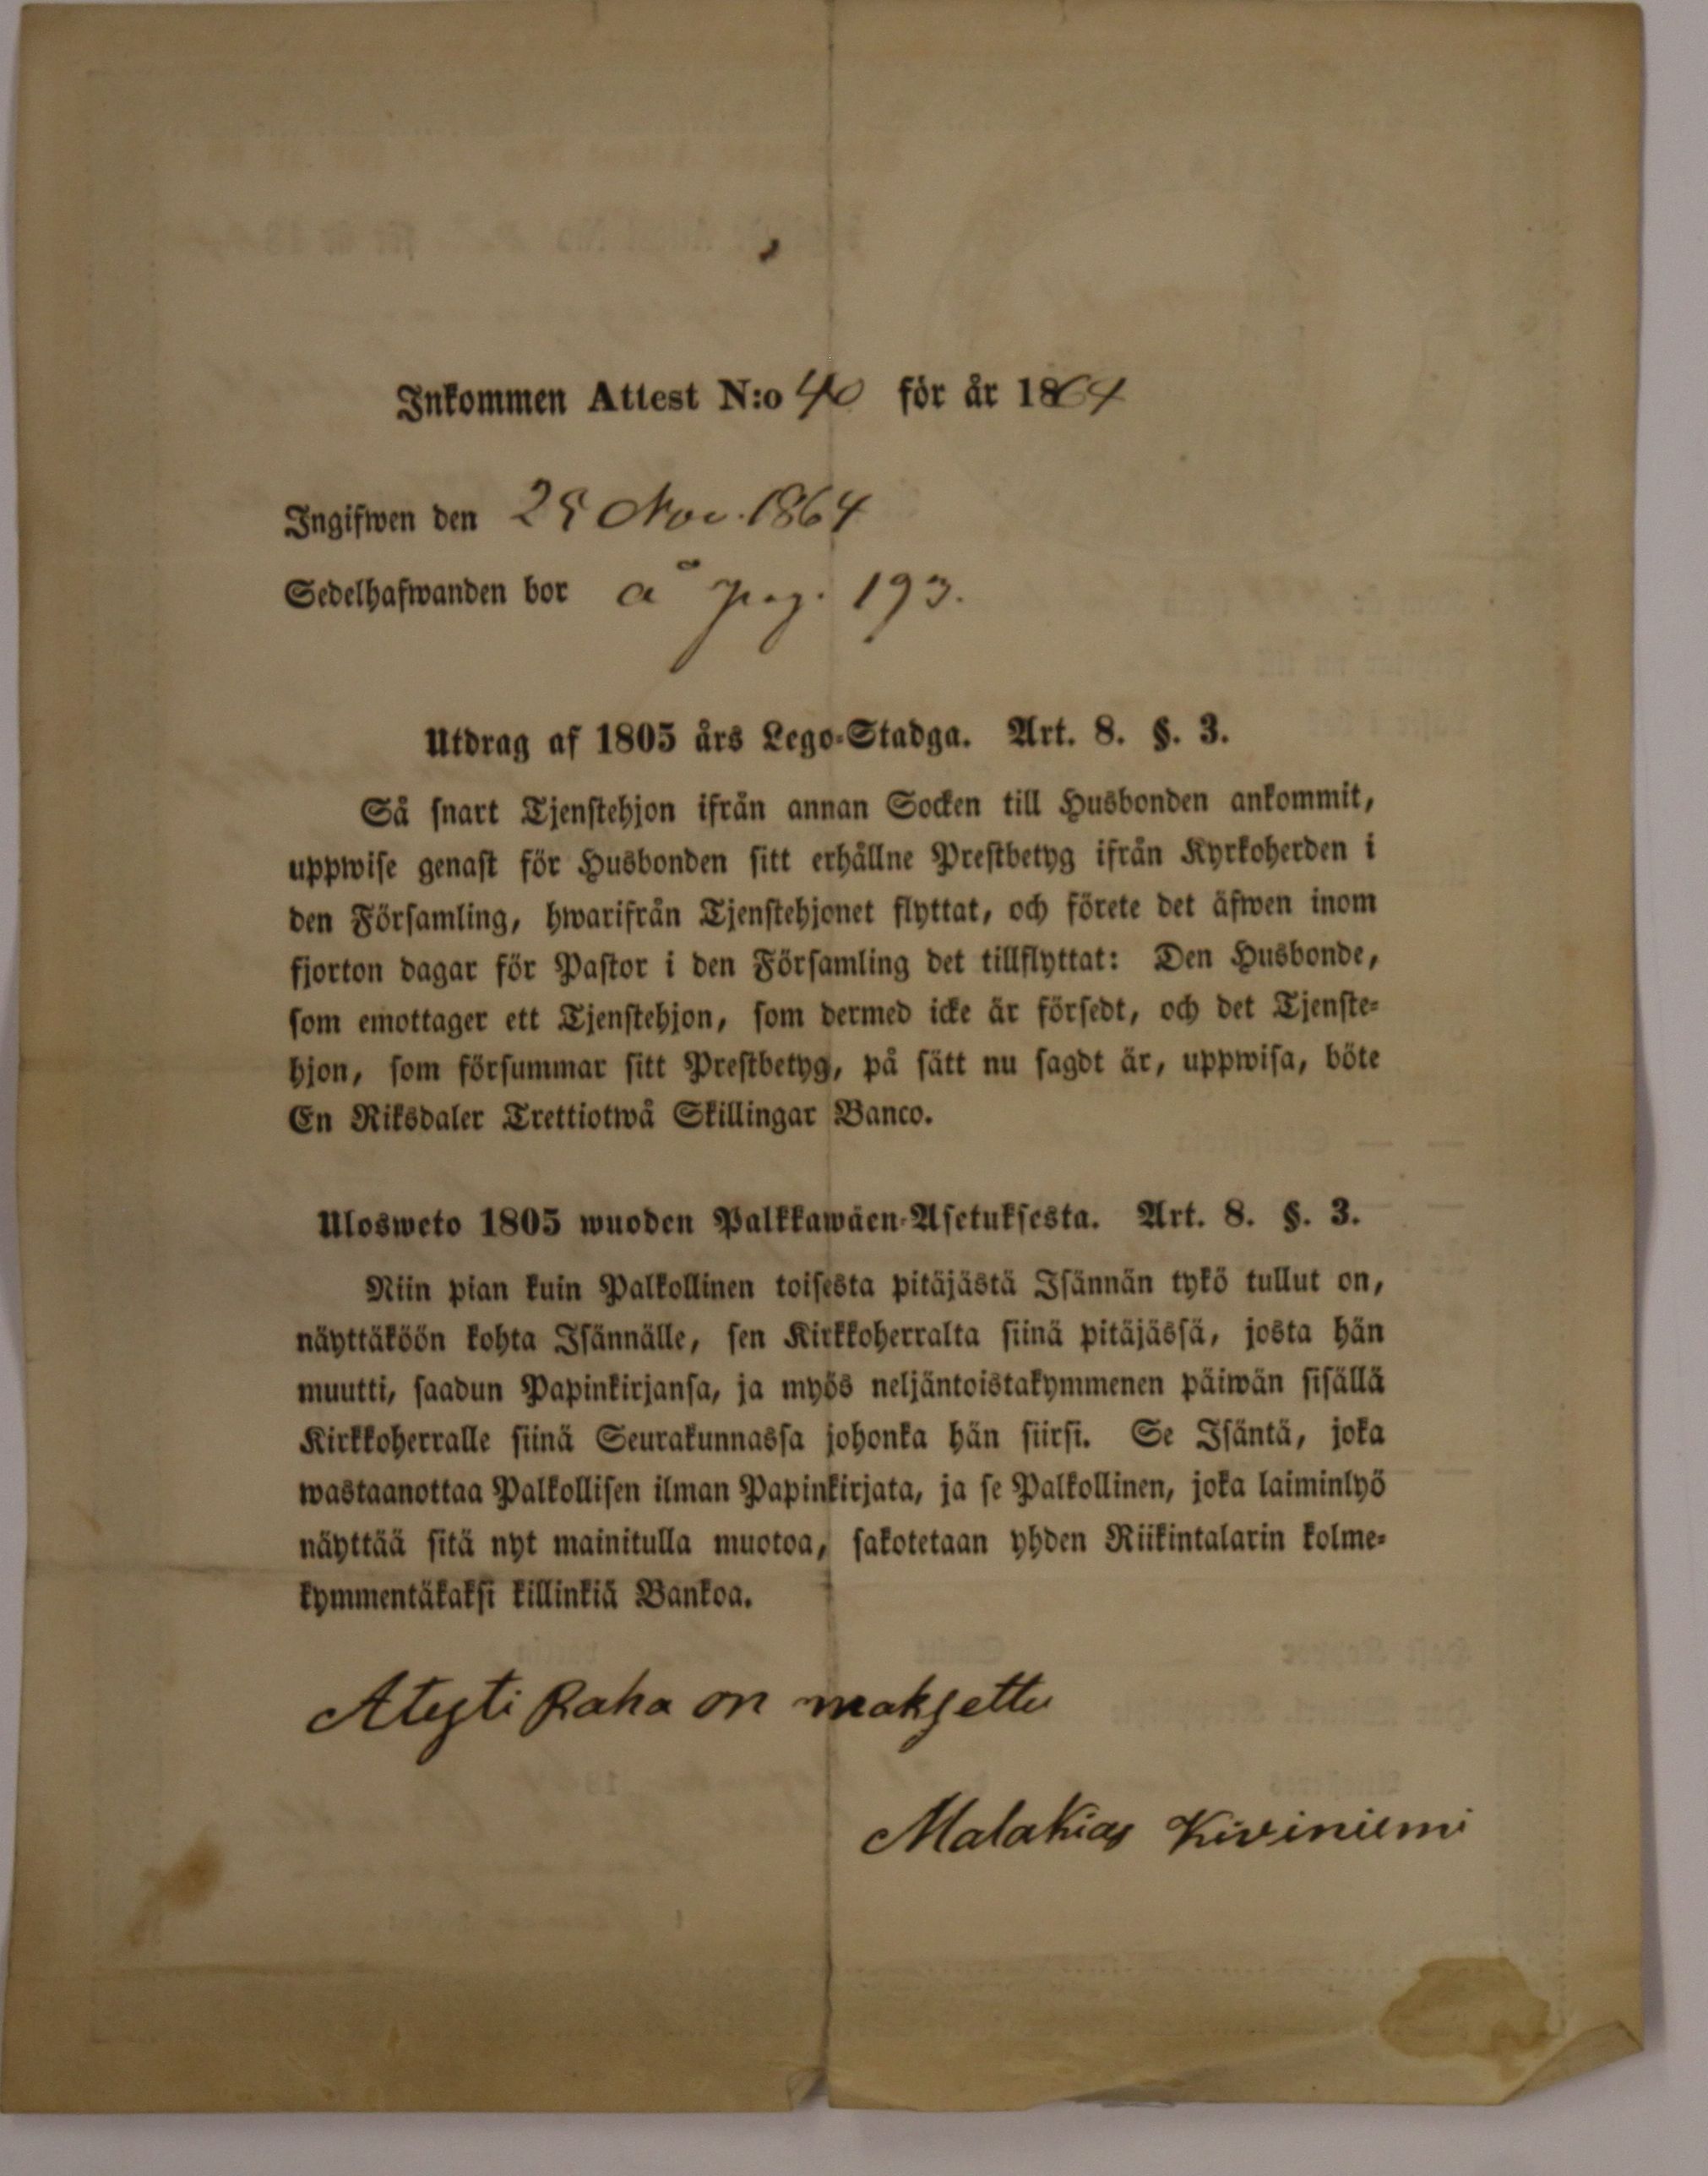 Inkommen Attest N:o 40 för år 1864
Ingifwen den 25 Nov. 1864
Sedelhafwanden bor å pag. 193.
Utdrag af 1805 års Lego-Stadga. Art. 8. §. 3.
Så snart Tjenstehjon ifrån annan Socken till Husbonden ankommit,
uppwise genast för Husbonden sitt erhållne Prestbetyg ifrån Kyrkoherden i
den Församling, hwarifrån Tjenstehjonet flyttat, och förete det äfwen inom
fjorton dagar för Pastor i den Församling det tillflyttat: Den Husbonde,
som emottager ett Tjenstehjon, som dermed icke är försedt, och det Tjenste-
hjon, som försummar sitt Prestbetyg, på sätt nu sagdt är, uppwisa, böte
En Riksdaler Trettiotwå Skillingar Banco.
Ulosweto 1805 wuoden Palkkawäen-Asetuksesta. Art. 8. §. 3.
Niin pian kuin Palkollinen toisesta pitäjästä Isännän tykö tullut on,
näyttäköön kohta Isännälle, sen Kirkkoherralta siinä pitäjässä, josta hän
muutti, saadun Papinkirjansa, ja myös neljäntoistakymmenen päiwän sisällä
Kirkkoherralle siinä Seurakunnassa johonka hän siirsi. Se Isäntä, joka
wastaanottaa Palkollisen ilman Papinkirjata, ja se Palkollinen, joka laiminlyö
näyttää sitä nyt mainitulla muotoa, sakotetaan yhden Riikintalarin kolme-
kymmentäkaksi killinkiä Bankoa.
Atesti Raha on maksettu
Malakias Kiviniemi